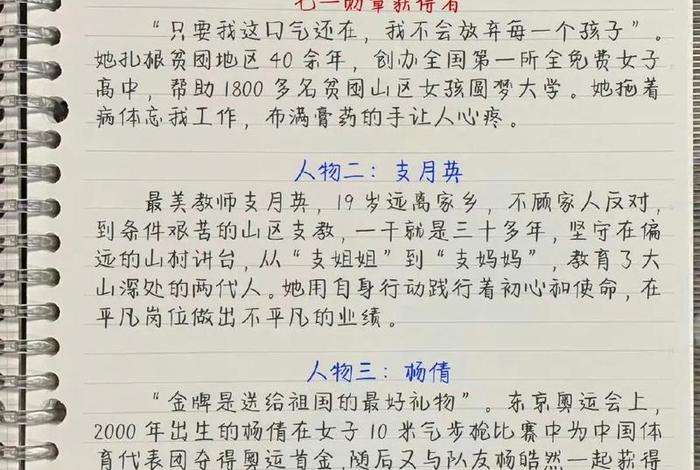 七一勋章获得者
“只要我这口气还在，我不会放弃每一个孩子”。
她扎根贫困地区40余年，创办全国第一所全免费女子
高中，帮助1800多名贫困山区女孩圆梦大学。她拖着
病体忘我工作，布满膏药的手让人心疼。
人物二：支月英
最美教师支月英，19岁远离家乡，不顾家人反对，
到条件艰苦的山区支教，一干就是三十多年，坚守在偏
远的山村讲台，从“支姐姐”到“支妈妈”，教育了大
山深处的两代人。她用自身行动践行着初心和使命，在
平凡岗位做出不平凡的业绩。
人物三：杨倩
“金牌是送给祖国的最好礼物”。东京奥运会上，
2000年出生的杨倩在女子10米气步枪比赛中为中国体
育代表团夺得奥运首金，随后又与队友杨皓然一起获得